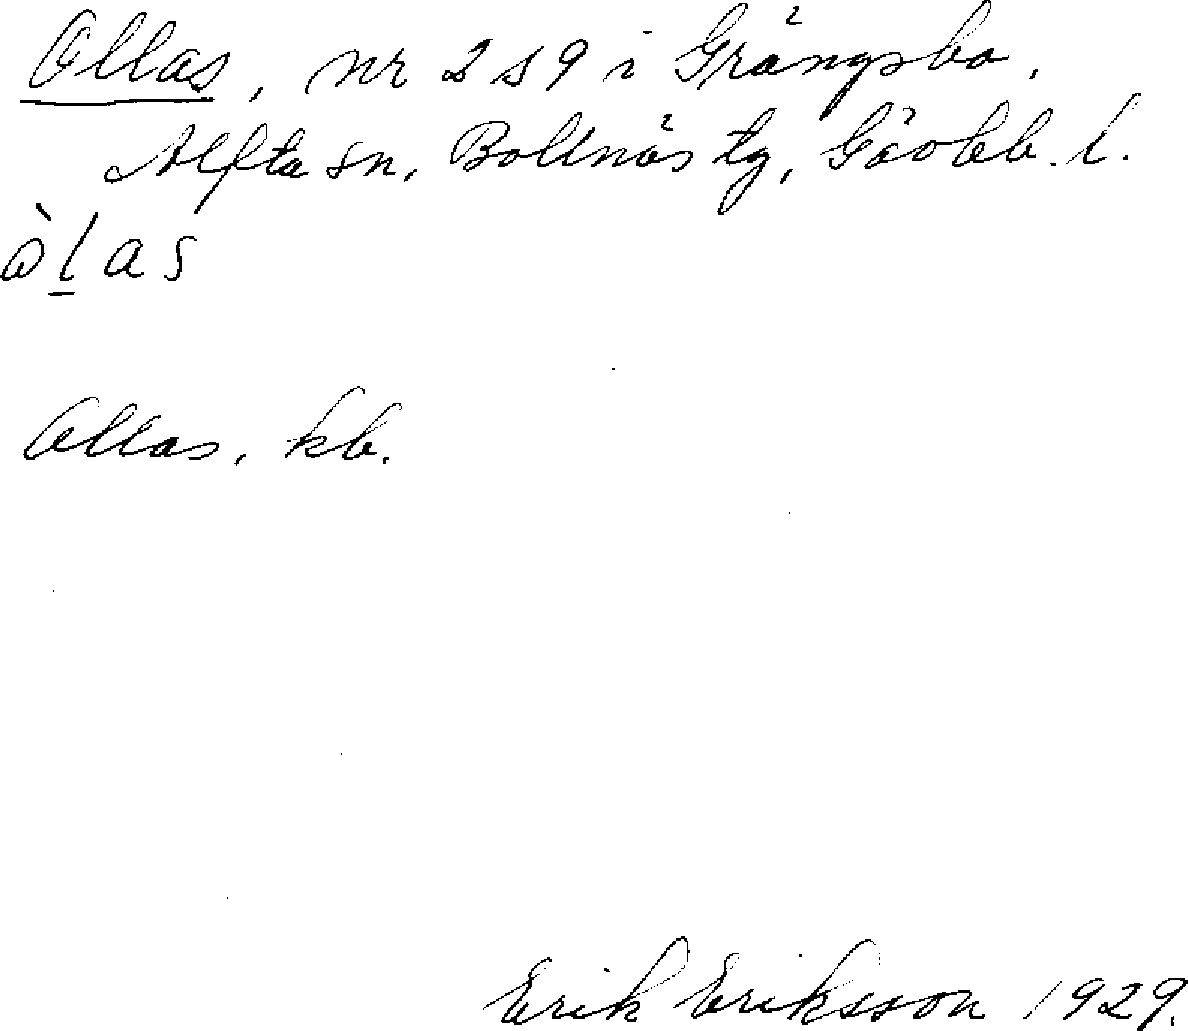 Ollas, nr 2 s 9 i Grängsbo,
Alfta sn, Bollnäs tg, Gävleb. l.
òlas
Ollas, kb.
Erik Eriksson 1929.